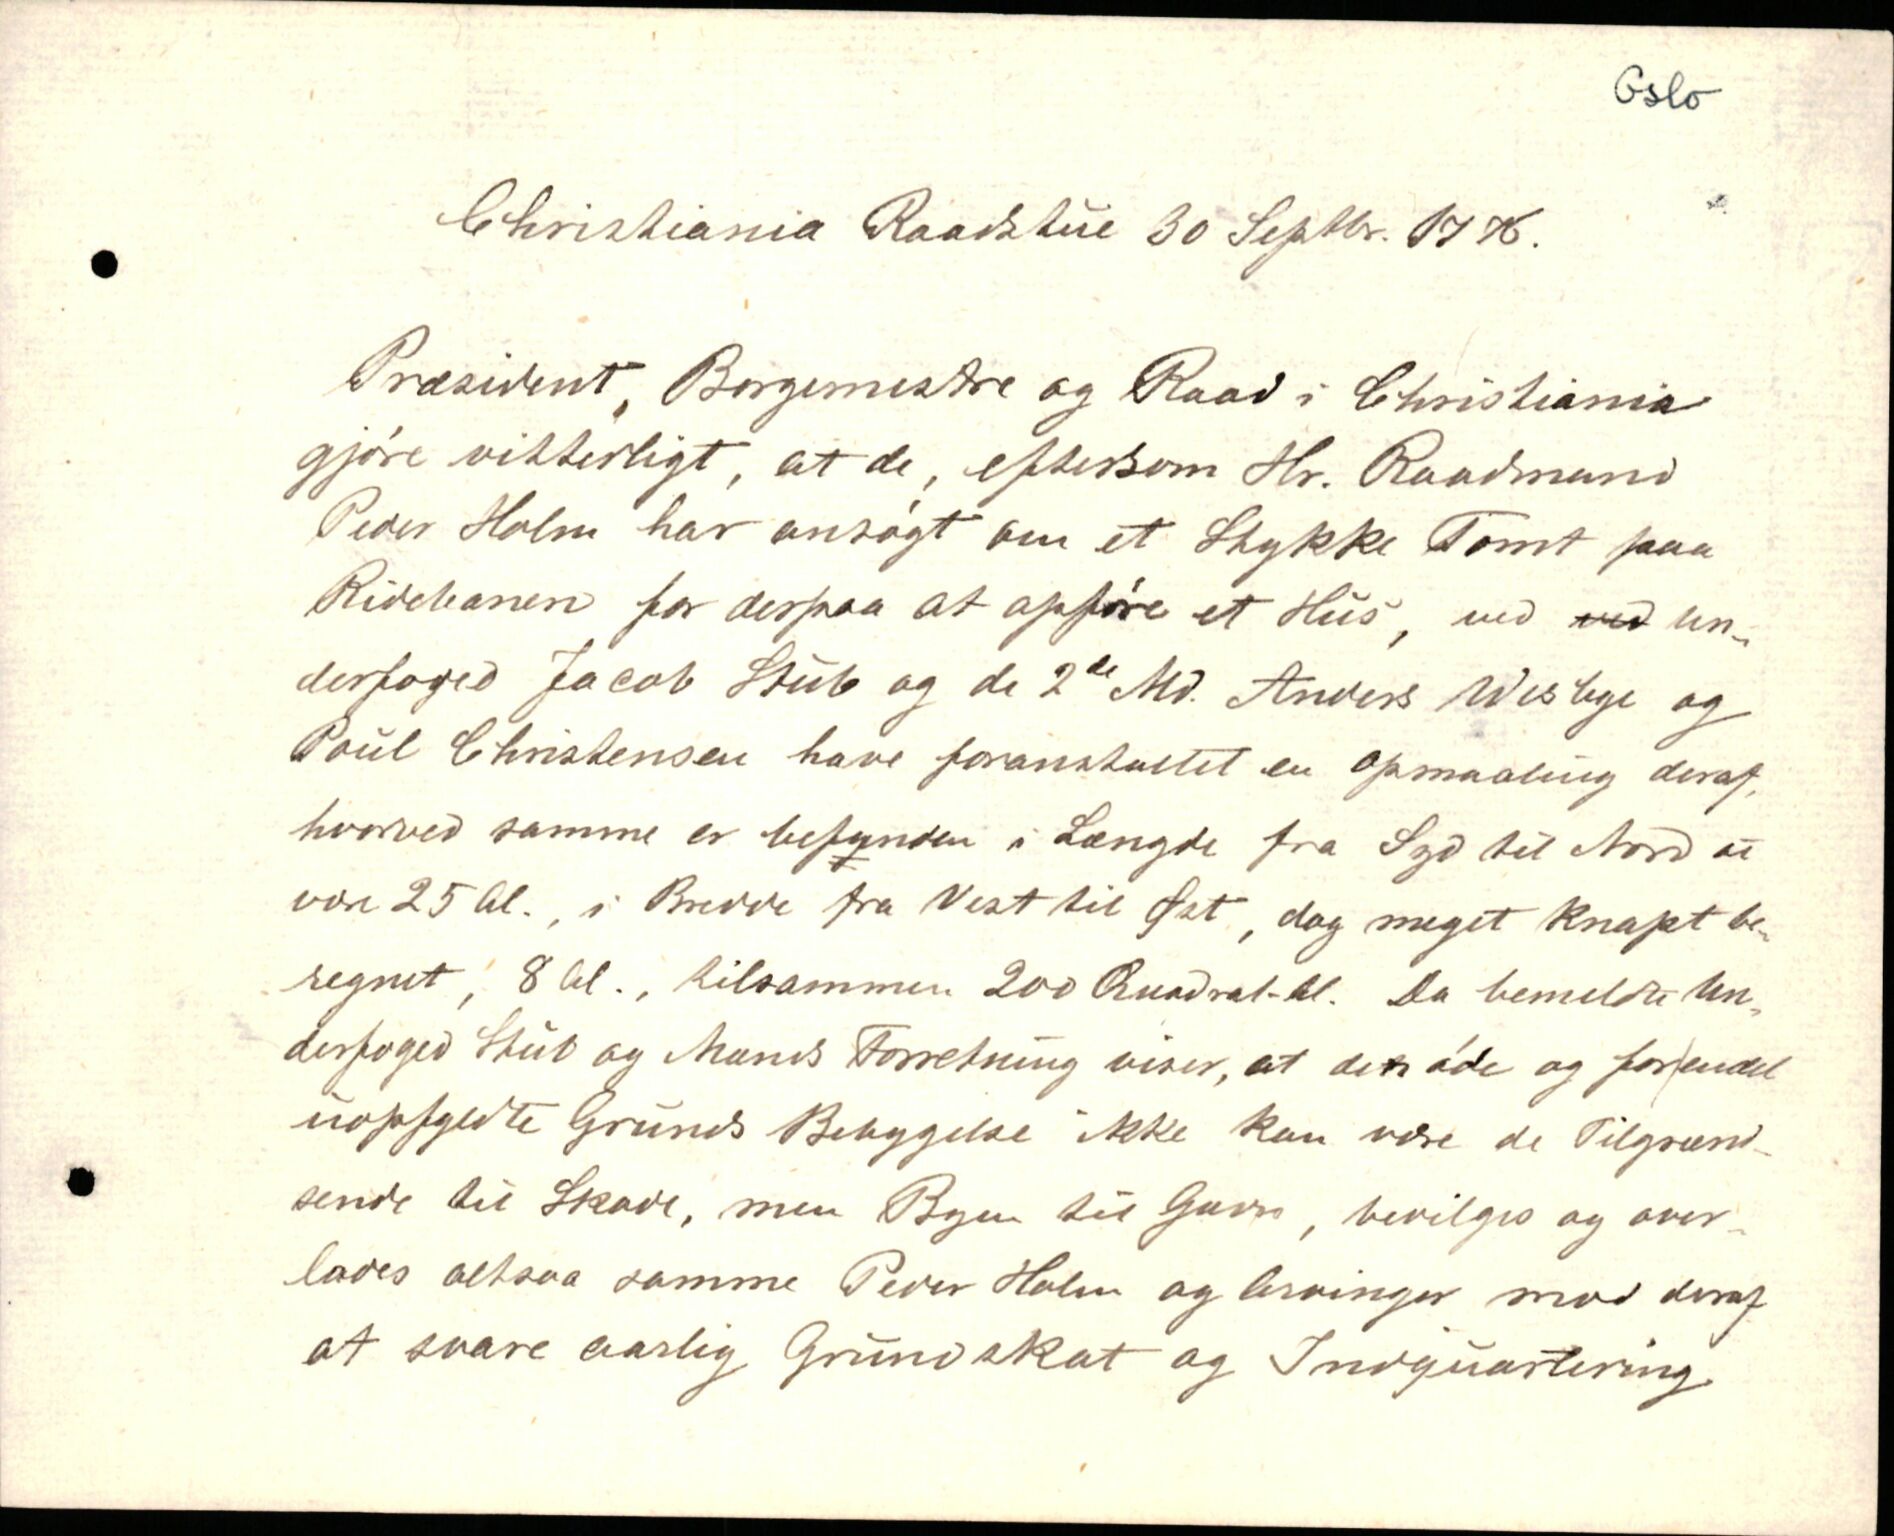 Oslo
Christiania Raadstue 30 Septbr. 17
Præsident, Borgermestre og Raad i Christiania
gjöre vitterligt, at de, eftersom Hr. Raadmand
Peder Holm har ansögt om et Stykke Tomt paa
Ridebanen for derpaa at opföre et Hus, ved ved Un-
derfoged Jacob Stub og de 2de Md. Anders Wesbye og
Poul Christensen have foranstaltet en Opmaaling deraf,
hvorved samme er befunden i Længde fra Syd til Nord at
være 25 Al., i Bredde fra Vest til Øst, dog meget knapt be-
regnet, 8 Al., tilsammen 200 Quadrat-Al. Da bemeldte Un-
derfoged Stub og Mænds Forretning viser, at den öde og for endel
uopfyldte Grunds Bebyggelse ikke kan være de Tilgrænd-
sende til Skade, men Byen til Gavn, bevilges og over-
lades altsaa samme Peder Holm og Arvinger mod deraf
at svare aarlig Grundskat og Indquartering